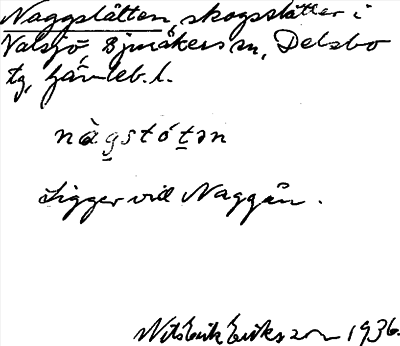 Naggslåtten, skogsslåtter i
Valsjö, Bjuråkers sn, Delsbo
tg, Gävleb. l.
nàgstótən
Ligger vid Naggån.
Nils Erik Eriksson 1936.